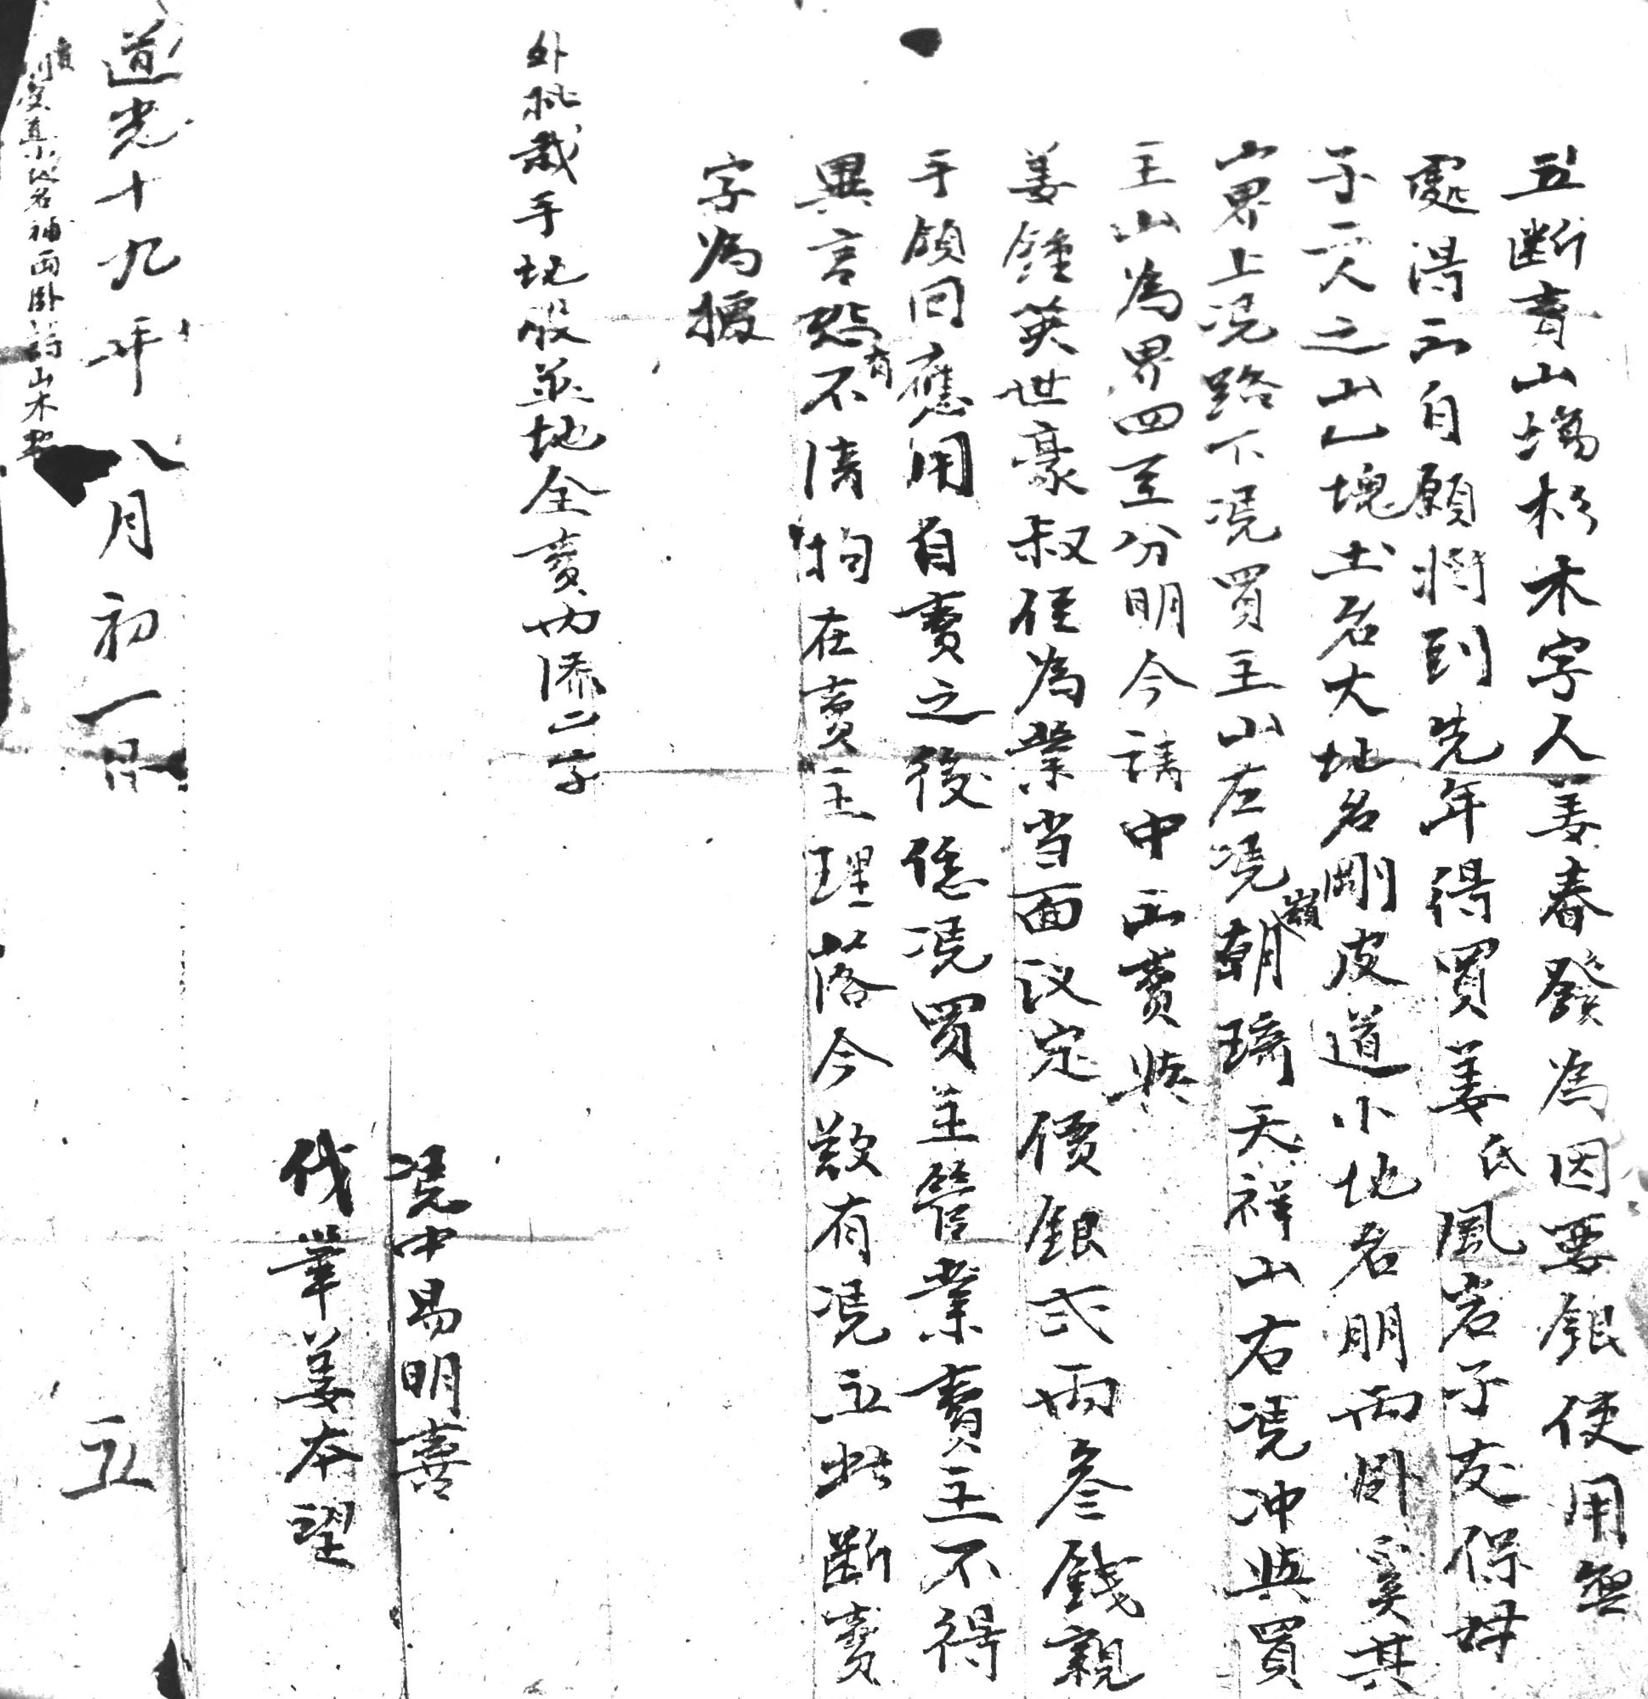 立断賣山塲杉木字人姜春發為因要銀使用無
處得, 自願將到先年得買姜氏風岩子友保母
子二人之山乙塊土名大地名剛皮道小地名朋両卧奚其
山界上凴路下凴買主山左凴嶺朝琦天祥山右凴冲與買
主山為界四至分明今請中 賣與
姜鍾英世豪叔侄為業当面议定價銀弍両叁錢親
手領回應用自賣之後任凴買主管業賣主不得
異言恐有不清拘在賣主理落今欲有凴立此断賣
字為據
外批栽手地股並地全賣内添二字
凴中易明喜
代筆姜本望
道光十九年八月初一日 立
皮 小地名 両卧 山木契